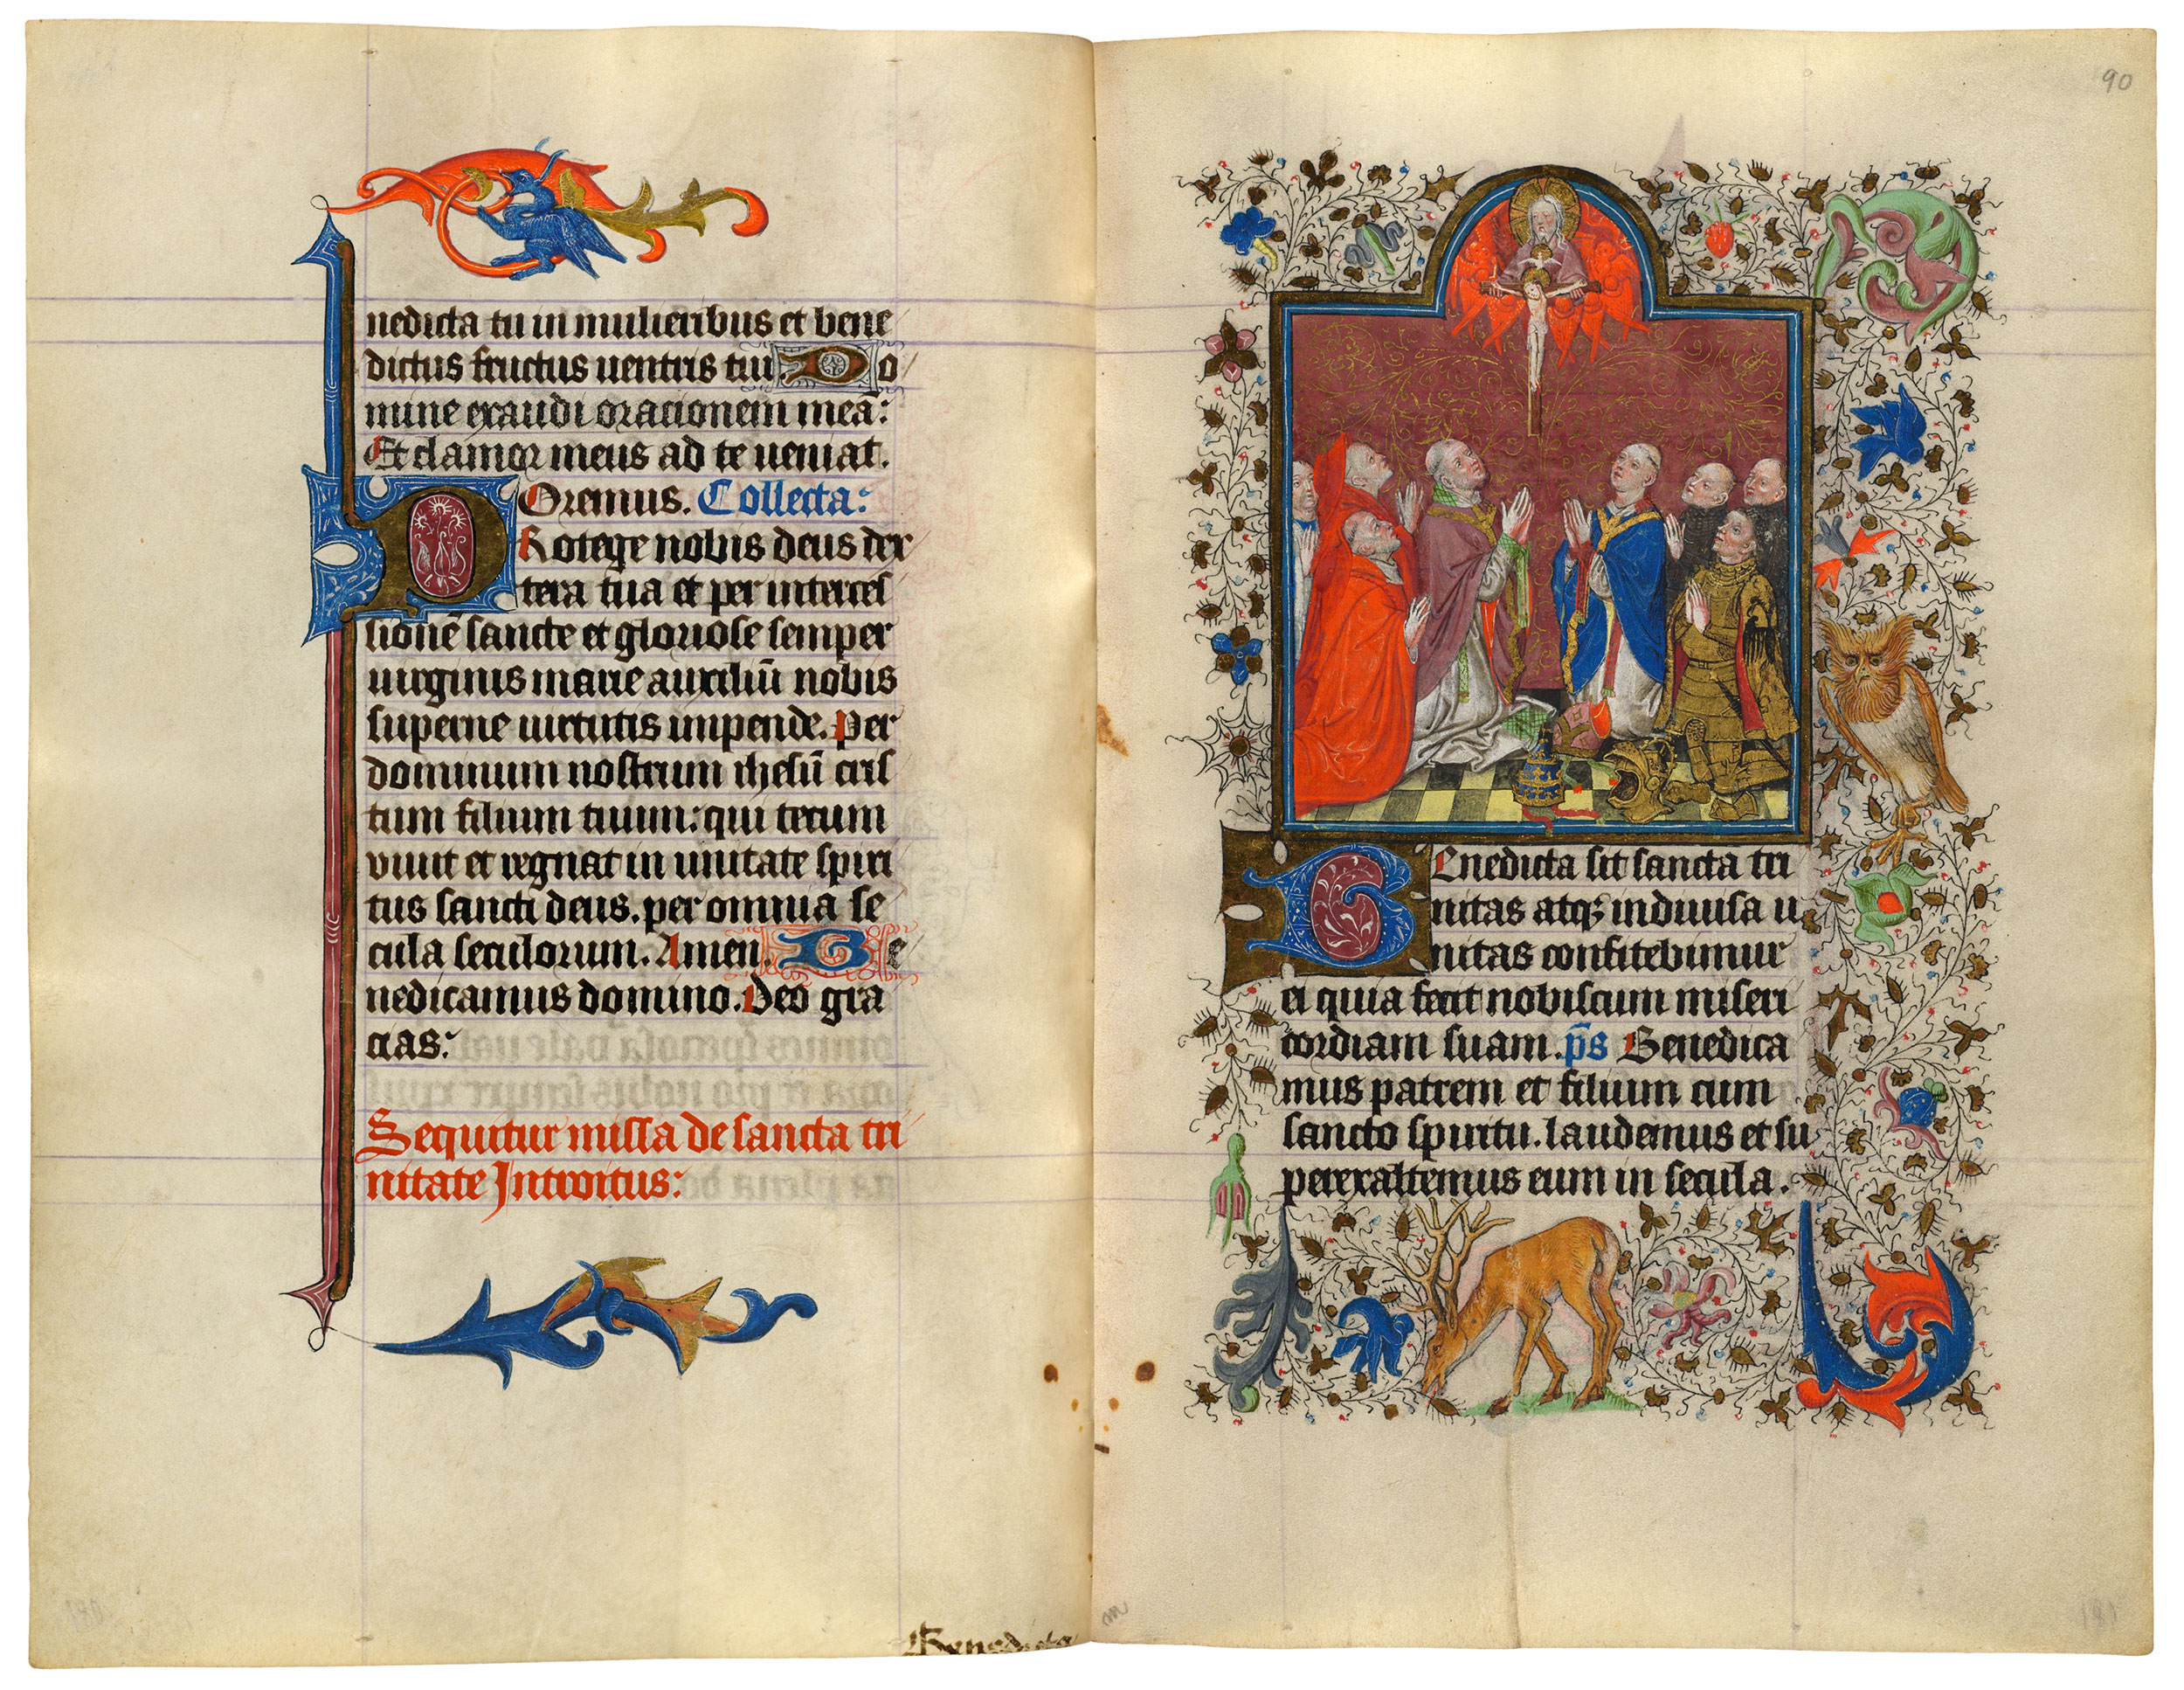 nedicta tu in mulieribus et bene
dictus fructus uentris tui. Do
mine exaudi oracionem meā:
Et clamor meus ad te ueniat.
Oremus. Collecta:
PRotege nobis deus dex
tera tua et per interces
sionē sancte et gloriose semper
uirginis marie auxiliū nobis
superne uirtutis impende. Per
dominum nostrum ihesū cris
tum filium tuum: qui tecum
viuit et regnat in unitate spiri
tus sancti deus. per omnia se
cula seculorum. Amen. Be
nedicamus domino. Deo gra
cias:
Sequitur missa de sancta tri
nitate Introitus:
Benedicta
90
BEnedicta sit sancta tri
nitas atqꝫ indiuisa u
nitas confitebimur
ei quia fecit nobiscum miseri
cordiam suam. p̄s Benedica
mus patrem et filium cum
sancto spiritu. laudemus et su
perexaltemus eum in secula.